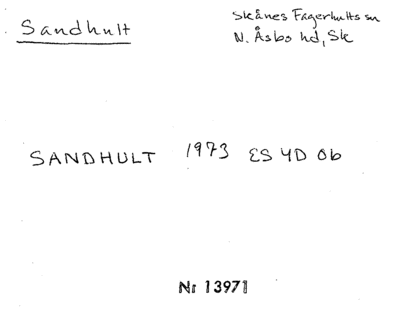 Sandhult
Skånes Fagerhults sn
N. Åsbo hd, Sk
SANDHULT 1973 ES 4D 0b
Nr 13971